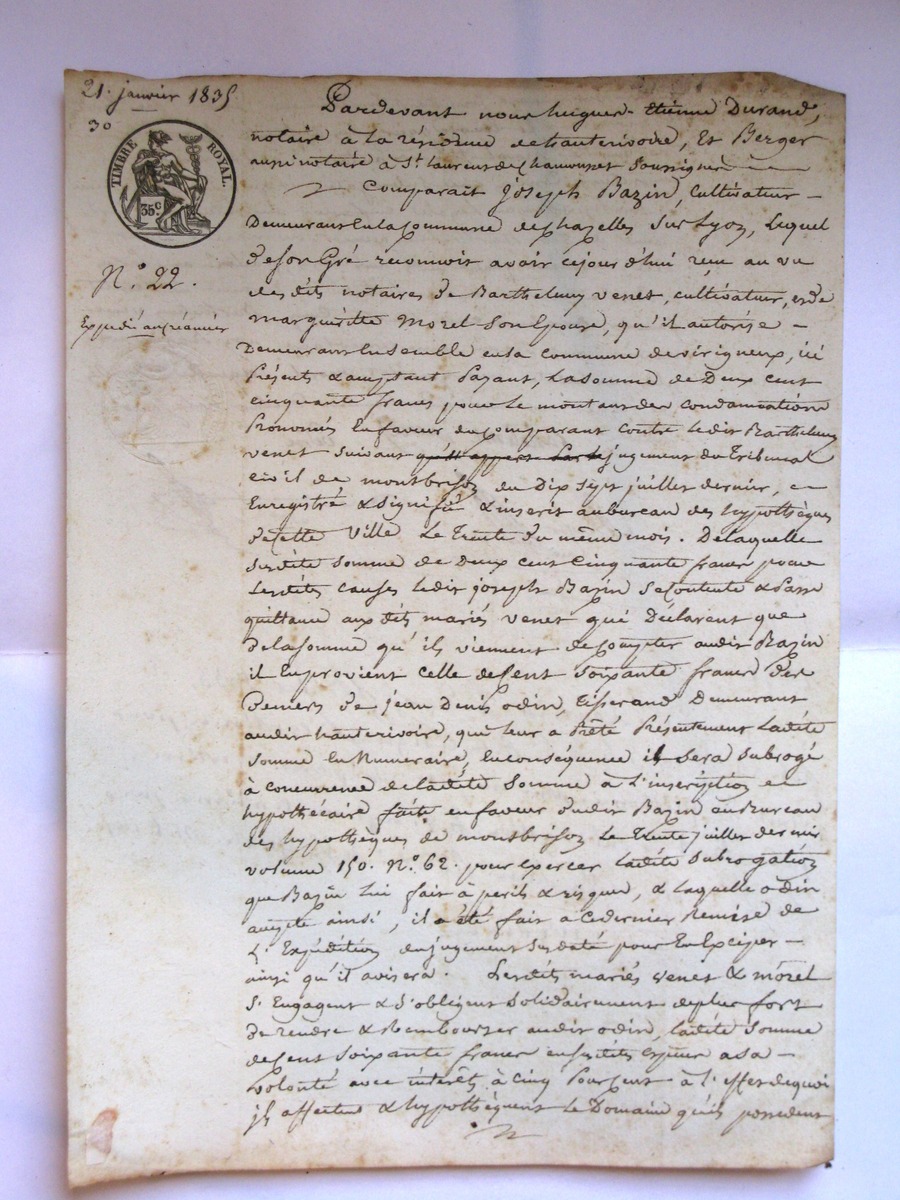 21. janvier 1835
30
TIMBRE ROYAL.
35.c
N.° 22.
Expédié au créancier
Pardevant nous hugues-Etienne Durand,
notaire à la résidence de hauterivoire, Et Berger
aussi notaire à St. laurent de Chamousset Soussignés
Comparait Joseph Bazin, Cultivateur
Demeurant En la Commune de chazelles Sur Lyon, Lequel
de Son Gré reconnoit avoir cejourd'hui reçu au vu
des dits notaires de Barthelemy venet, cultivateur, et de
marguéritte Morel Son Epouse, qu'il autorise
Demeurant Ensemble en la commune de virigneux, ici
Présents & acceptant Payant, La Somme de Deux cent
cinquante francs pour Le montant des condamnations
Prononcés En faveur du Comparant contre Ledit Barthelemy
venet suivant jugement du Tribunal
civil de montbrison du Dix Sept juillet dernier,
Enregistré & Signifié & inscrit au bureau des hypothèques
de Cette Ville Le Trente du même mois. De laquelle
Susdite Somme de Deux cent Cinquante francs pour
Lesdites causes Ledit joseph Bazin Se Contente & Passe
quittance aux dits mariés venet qui Déclarent que
de la Somme qu'ils viennent de Compter audit Bazin
il En provient celle de Cent Soixante francs des
Deniers de jean Denis odin, Tisserand Demeurant
audit hauterivoire, qui leur a Prêté Présentement Ladite
Somme En Numeraire, En conséquence il Sera Subrogé
à concurrence de ladite Somme à l'inscription
hypothécaire faite en faveur dudit Bazin au Bureau
des hypothèques de montbrison Le Trente juillet dernier
volume 150. N.° 62. pour Exercer Ladite Subrogation
que Bazin Lui fait à perils & risques, & Laquelle odin
accepte ainsi, il a été fait a Ce dernier Remise de
L'Expédition du jugement Sus daté pour En Exciper
ainsi qu'il avisera. Lesdits mariés venet & morel
S'Engagent & S'obligent Solidairement de plus fort
De rendre & Rembourser audit odin, Ladite Somme
de Cent Soixante francs en Susdites Espèces a sa
volonté avec intérêts à Cinq Pour Cent à l'effet de quoi
ils affectent & hypothéquent Le Domaine qu'ils possedent